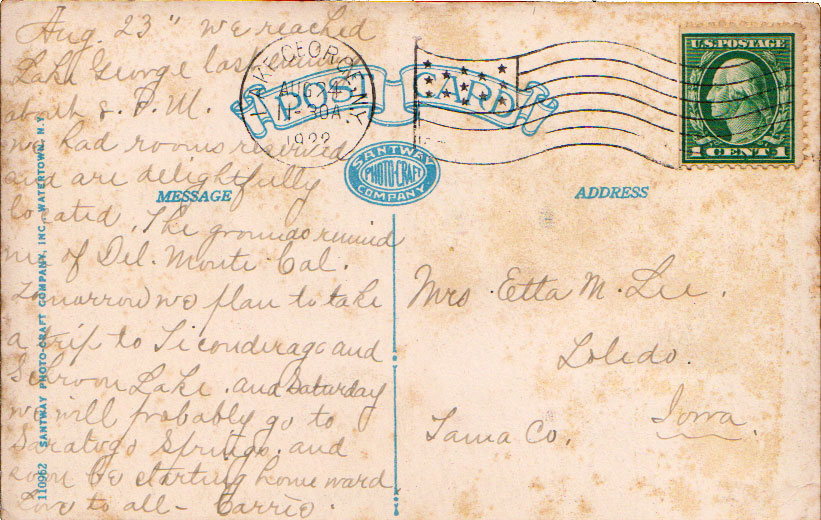 Aug. 23" we reached
Lake George last evening
about 8. P. M.
we had rooms reserved
and are delightfully
located. The grounds remind
me of Del. Monte Cal.
Tomorrow we plan to take
a trip to Ticonderago and
Schroon Lake. and Saturday
we will probably go to
Saratogo Springs. and
soon be starting home ward
Love to all - Carrie.
LAKE GEORGE N.Y.
AUG 24
11-30A
1922
POST CARD
U.S. POSTAGE
1 CENT 1
SANTWAY
PHOTO-CRAFT
COMPANY
MESSAGE
ADDRESS
Mrs. Etta M. Lee.
Toledo.
Tama Co. Iowa.
110962 SANTWAY PHOTO-CRAFT COMPANY, INC., WATERTOWN, N.Y.